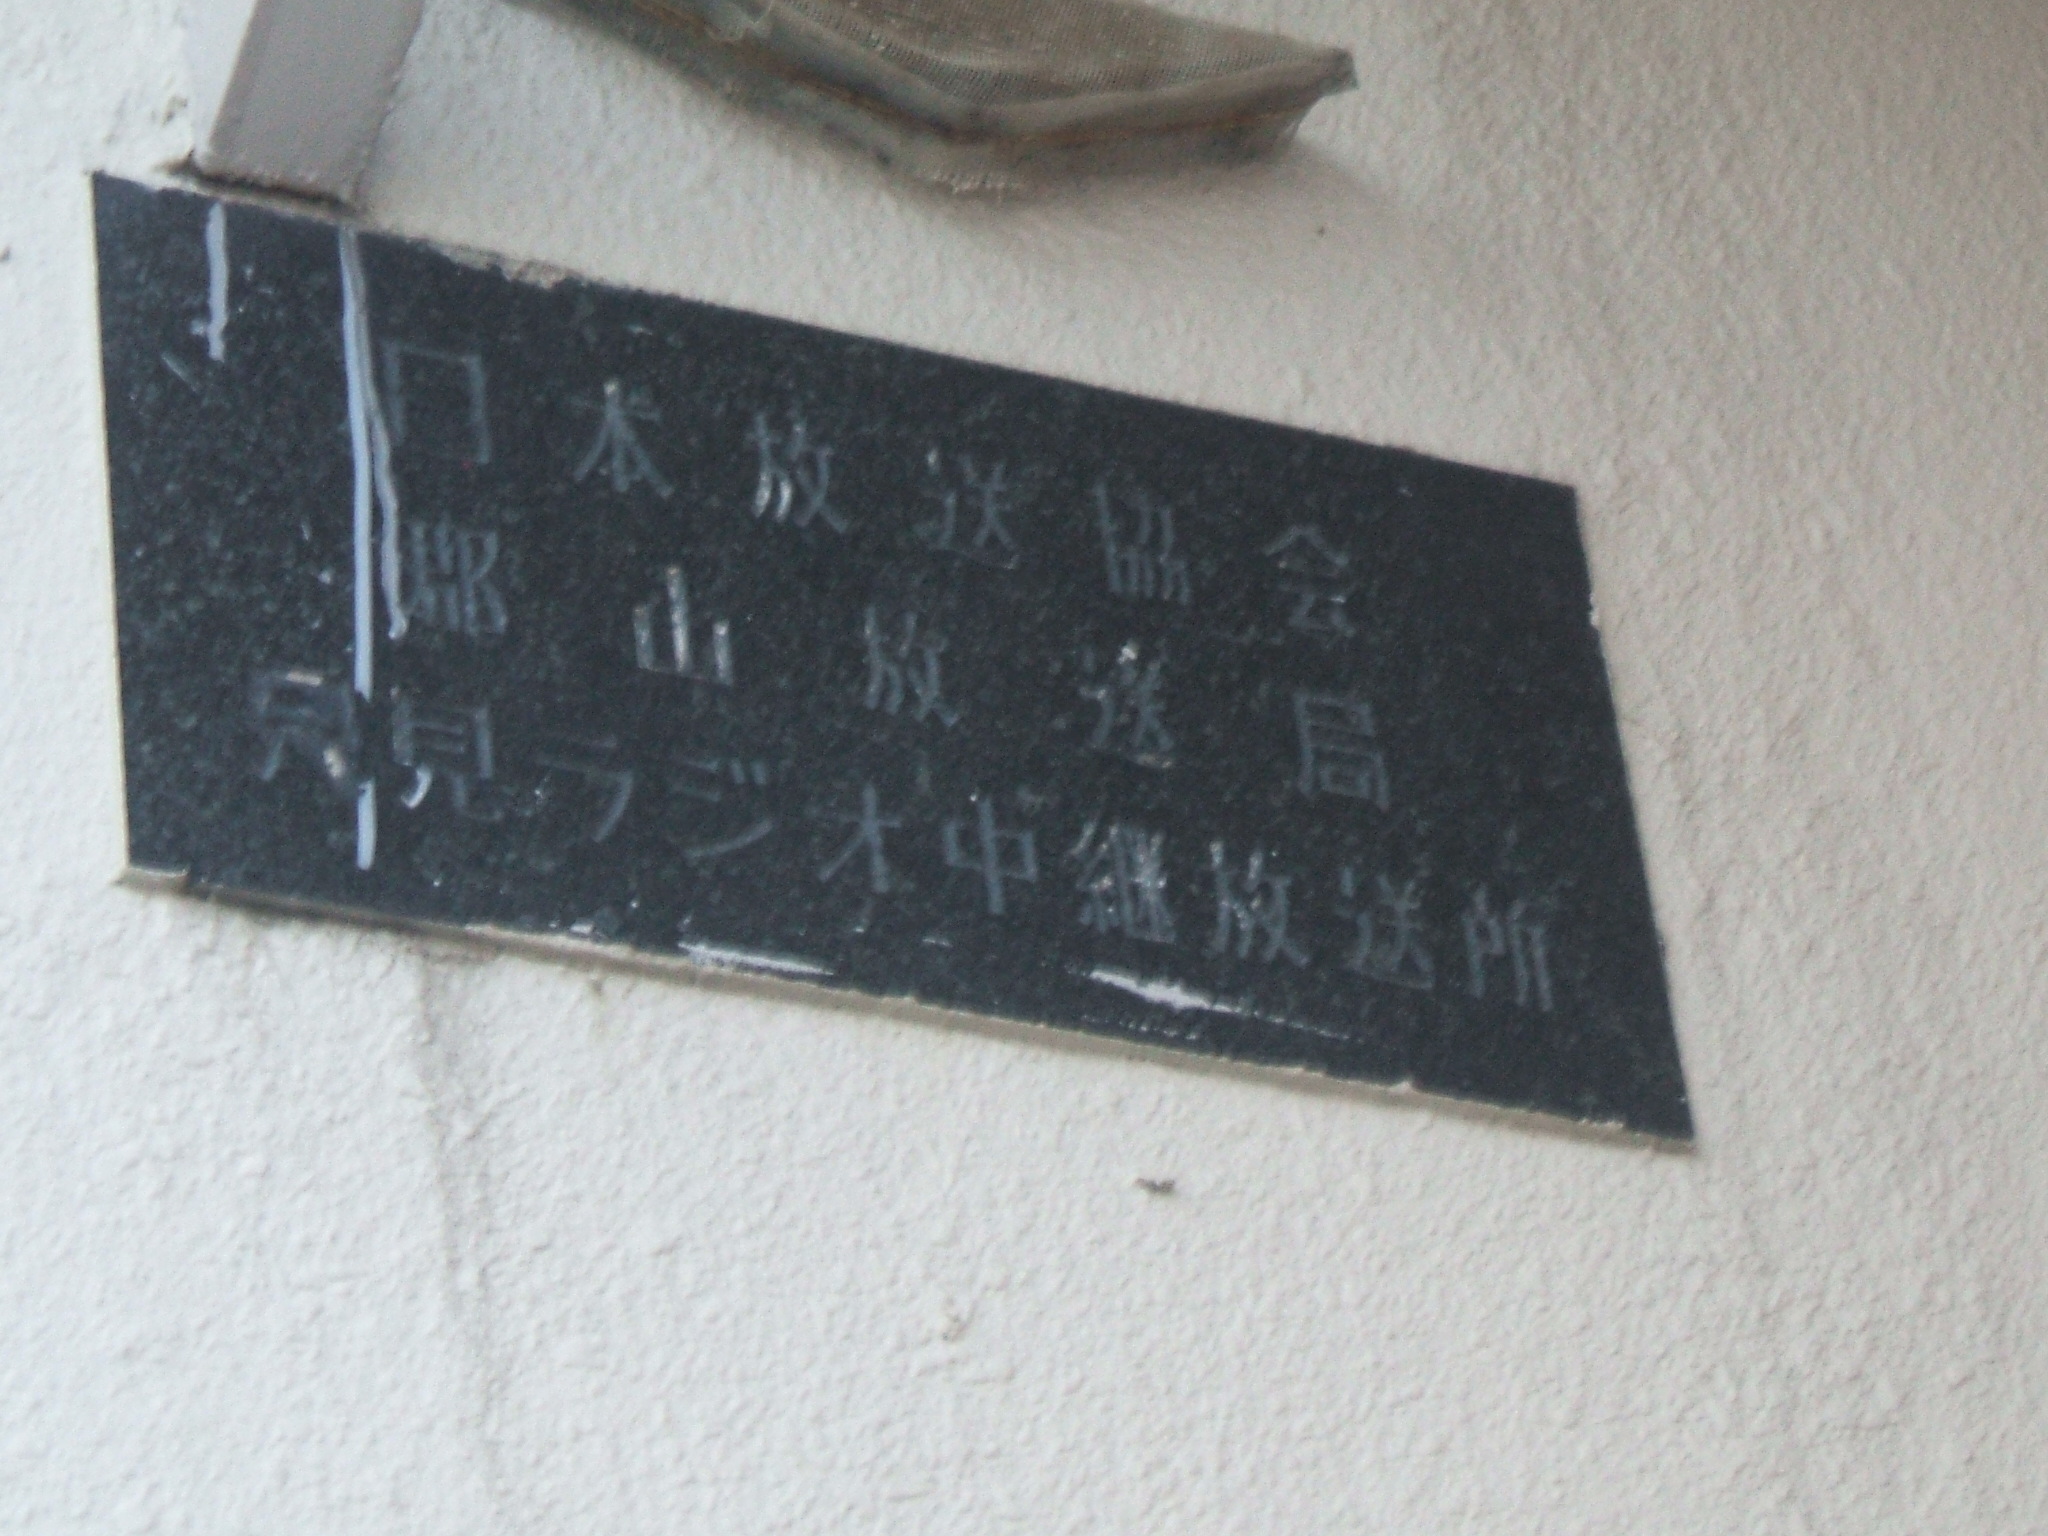 日本放送協会
郡山放送局
只見ラジオ中継放送所